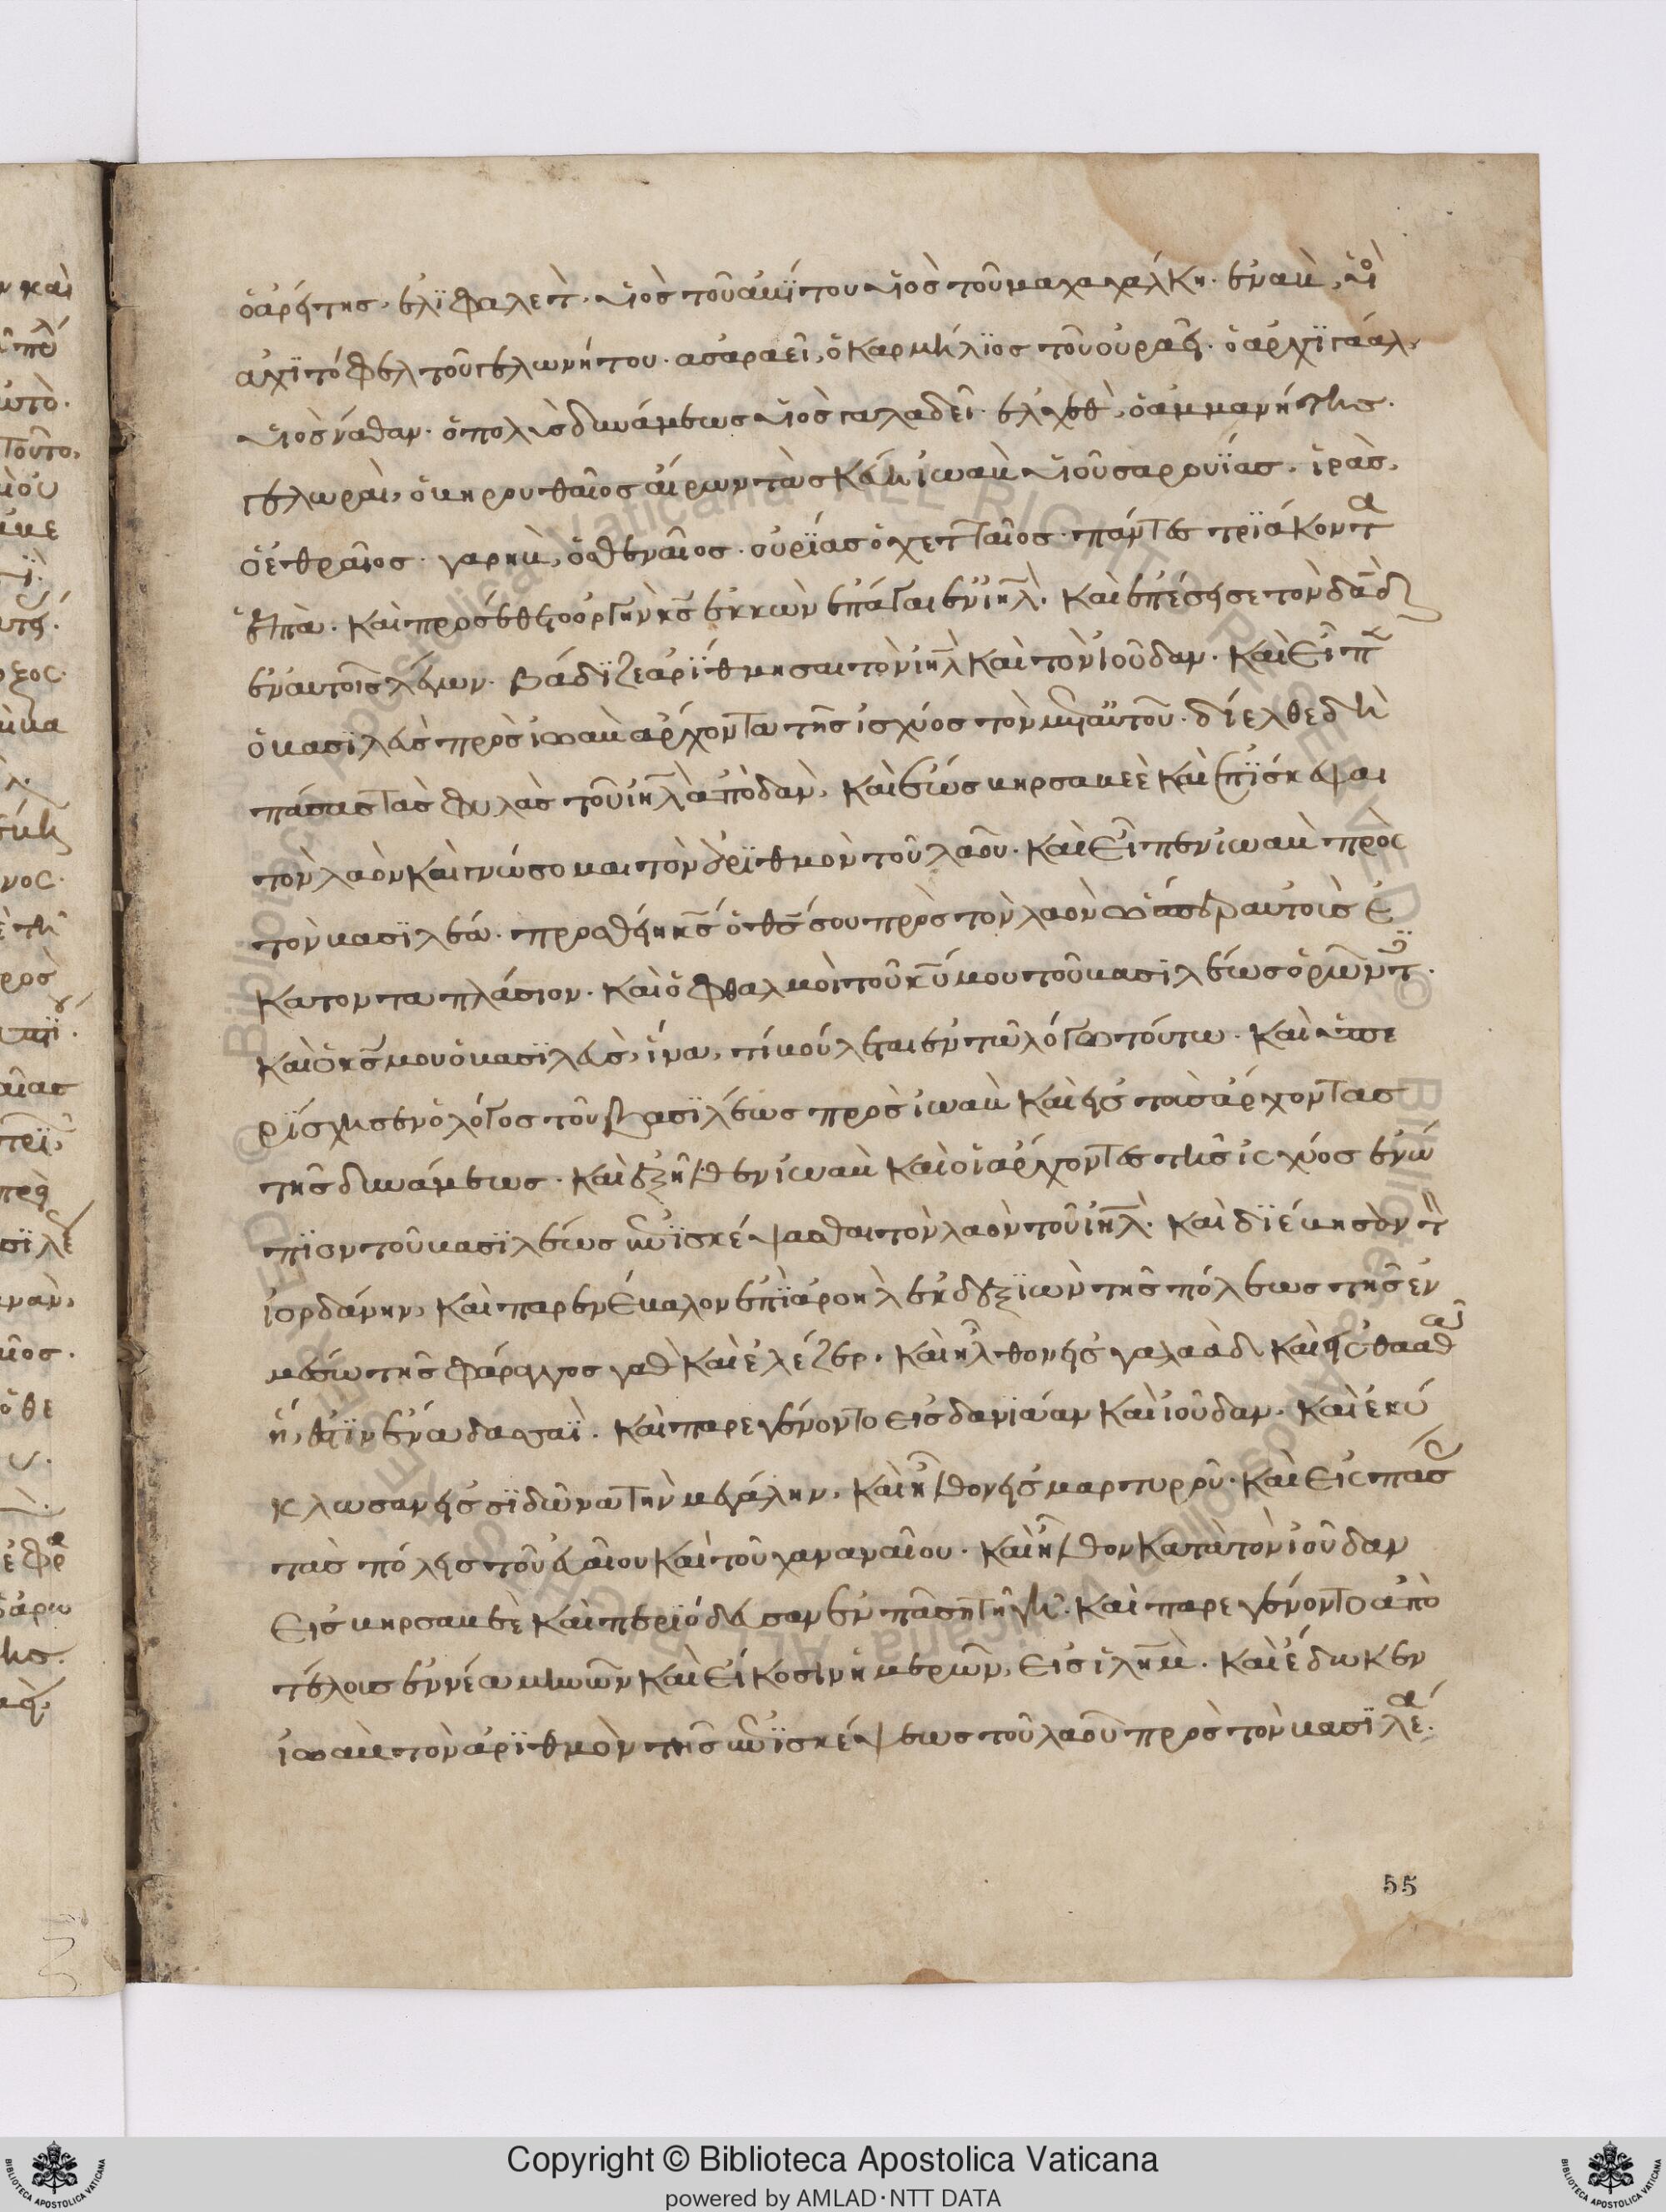 ὁ ἀρήτης· ἐλϊφαλετ· υἱὸς τοῦ ἀμΐτου υἱὸς τοῦ μαχαχάλκη· ἐναὰβ, υἱὸ
ἀχϊτόφελ τοῦ γελωνήτου· ασαραεῖ, ὁ καρμήλϊος τοῦ οὐραεί· ὁ ἀρχϊ γαάλ,
υἱὸς νάθαν· ὁ πολὺς δυνάμεως υἱὸς γαλαδεῖ· ἐλιεθ, ὁ ἀμμανήτης·
γελωραὶ, ὁ βηρουθαῖος αἴρων τὰ σκεύη ἰωαὰβ υἱοῦ σαρουΐας· ἰρὰς,
ὁ ἐθραῖος· γαρηὰβ, ὁ ἐθεναῖος· οὐρΐας ὁ χετταῖος· πάντες τρϊάκοντα
ἑπτὰ· καὶ προσέθετο ὀργὴν κς ἐκκαῆναι ἐν ιηλ· καὶ ἐπέσεισε τὸν δαδ
ἐν αὐτοῖς λέγων· βάδϊζε ἀρΐθμησαι τὸν ιηλ καὶ τὸν ἰούδαν· καὶ εἶπεν
ὁ βασϊλεὺς πρὸς ἰωαὰβ ἄρχοντα τῆς ἰσχύος τὸν μετ αὐτοῦ· δίελθε δὴ
πάσας τὰς φυλὰς τοῦ ιηλ ἀπὸ δὰν, καὶ ἕως βηρσαβεὲ καὶ ἐπΐσκεψαι
τὸν λαὸν καὶ γνώσομαι τὸν ἀρϊθμὸν τοῦ λαοῦ· καὶ εἶπεν ἰωαὰβ πρὸς
τὸν βασϊλέα· προσθείη κς ὁ θς σου πρὸς τὸν λαὸν ὥσπερ αὐτοὺς ἑ
κατονταπλάσιον· καὶ ὀφθαλμοὶ τοῦ κυ μου τοῦ βασιλέως ὁρῶντες·
καὶ ὁ κς μου ὁ βασϊλεὺς, ἵνα, τί βούλεται ἐν τῶ λόγω τούτω· καὶ ὑπε
ρΐσχυσεν ὁ λόγος τοῦ βασϊλέως πρὸς ἰωαὰβ καὶ εἰς τοὺς ἄρχοντας
τῆς δυνάμεως· καὶ ἐξῆλθεν ἰωαὰβ καὶ οἱ ἄρχοντες τῆς ἰσχύος ἐνώ
πϊον τοῦ βασϊλέως ἐπϊσκέψασθαι τὸν λαὸν τοῦ ιηλ· καὶ δϊέβησαν τὸν
ἰορδάνην, καὶ παρενέβαλον ἐπὶ ἀροὴλ ἐκ δεξϊῶν τῆς πόλεως τῆς ἐν
μέσω τῆς φάραγγος γαδ καὶ ἐλέζερ· καὶ ἦλθον εἰς γαλαὰδ, καὶ εἰς θααθ
ἥ, ἐστϊν ἐν ἀδασαϊ· καὶ παρεγένοντο εἰς δανϊάαν καὶ ἰούδαν· καὶ ἐκύ
κλωσαν εἰς σϊδῶνα τὴν μεγάλην, καὶ ἦλθον εἰς μαρ τυρου· καὶ εἰς πάσας
τὰς πόλεις τοῦ εὐαίου καὶ τοῦ χαναναίου· καὶ ἦλθον κατὰ τὸν ἰούδαν
εἰς βηρσαβεὲ καὶ περϊόδευσαν ἐν πάση τῆ γῆ· καὶ παρεγένοντο ἀπὸ
τέλους ἐννέα μηνῶν καὶ εἴκοσιν ἡμερῶν, εἰς ἰλημ· καὶ ἔδωκεν
ἰωαὰβ τὸν ἀρϊθμὸν τῆς ἐπϊσκέψεως τοῦ λαοῦ πρὸς τὸν βασϊλέα·
55
Copyright © Biblioteca Apostolica Vaticana
powered by AMLAD·NTT DATA